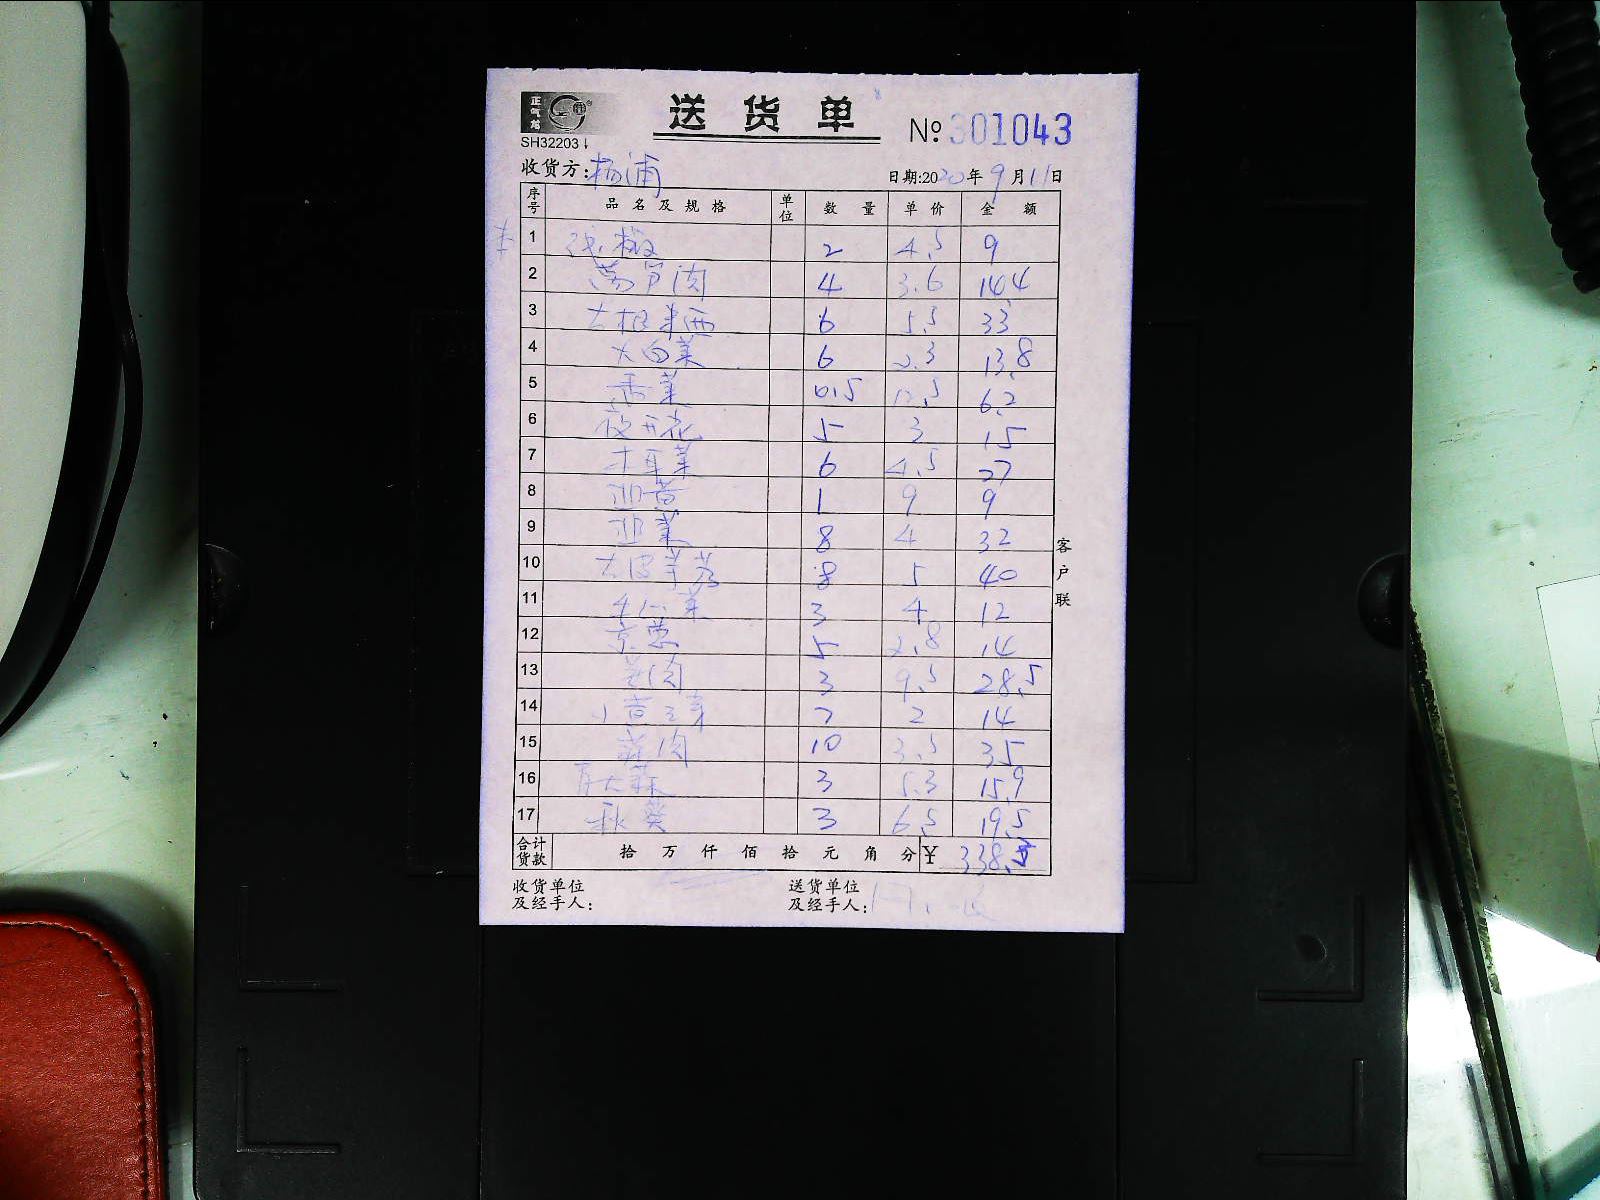 正气站
送货单
SH32203
№ 301043
收货方: 杨浦
日期:2020年9月11日
序号 品名及规格 单位 数量 单价 金额
1 浅椒 2 4.5 9
2 莴笋肉 4 3.6 14.4
3 6 5.5 33
4 大白菜 6 2.3 13.8
5 香菜 0.5 12.5 6.2
6 夜开花 5 3 15
7 木耳菜 6 4.5 27
8 1 9 9
9 8 4 32
10 8 5 40
11 3 4 12
12 京葱 5 2.8 14
13 姜肉 3 9.5 28.5
14 小黄豆芽 7 2 14
15 10 3.5 35
16 3 5.3 15.9
17 秋葵 3 6.5 19.5
合计货款 拾 万 仟 佰 拾 元 角 分 ¥ 338.
收货单位及经手人:
送货单位及经手人:
客户联